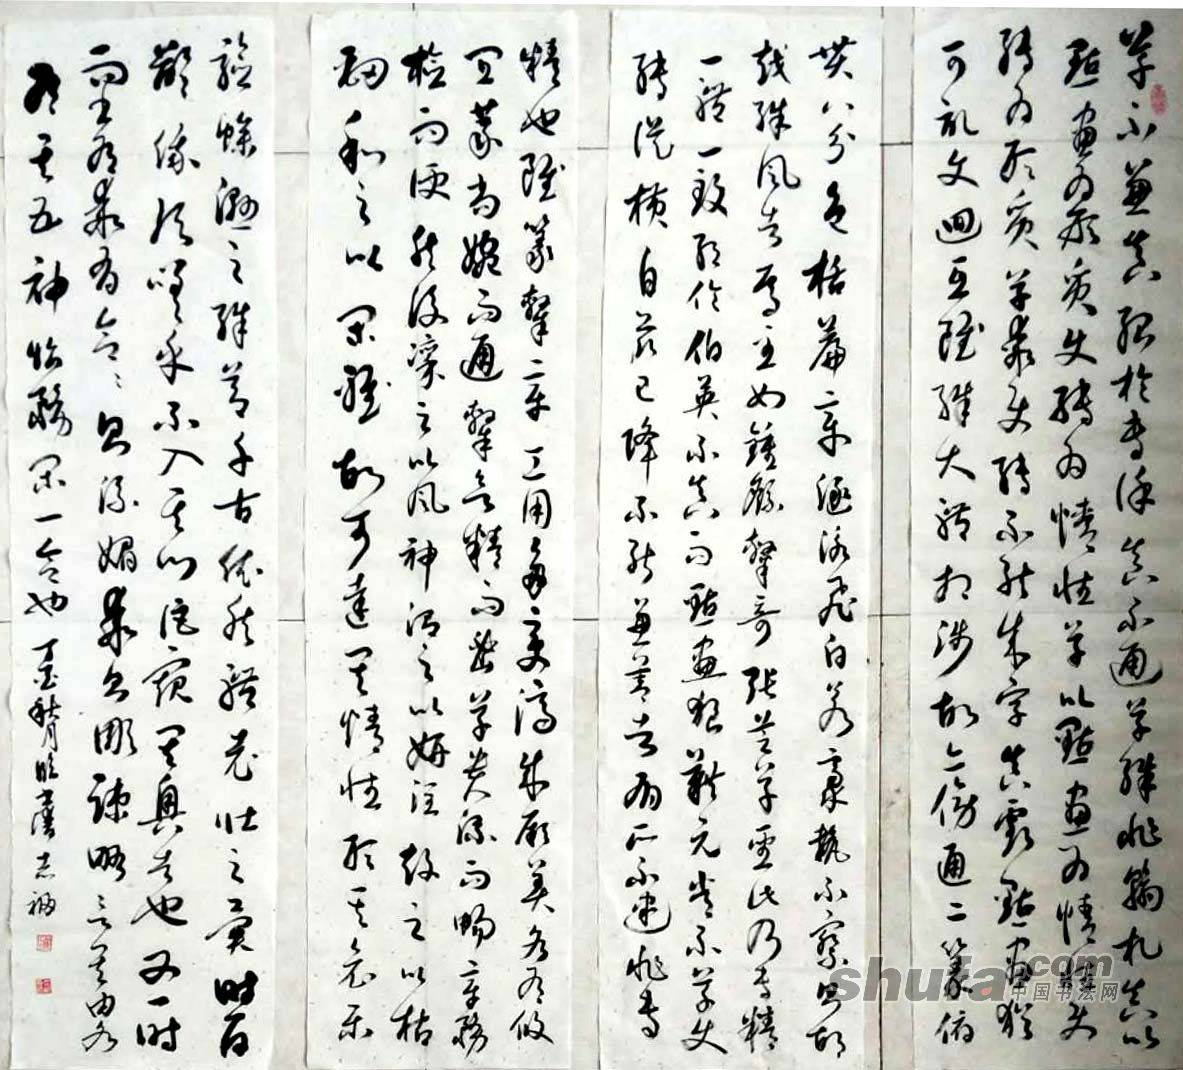 草不兼真殆於專謹真不通草殊非翰札真以
點畫為形質使轉為情性草以點畫為情性使
轉為形質草乖使轉不能成字真虧點畫猶
可記文迴互雖殊大體相涉故亦傍通二篆俯
貫八分包括篇章涵泳飛白若毫釐不察則胡
越殊風者焉至如鍾繇隸奇張芝草聖此乃專精
一體一致絕倫伯英不真而點畫狼藉元常不草使
轉縱橫自茲已降不能兼善者有所不逮非專
精也雖篆隸章工用多變濟成厥美各有攸
宜篆尚婉而通隸欲精而密草貴流而暢章務
檢而便然後凜之以風神溫之以妍潤鼓之以枯
勁和之以閑雅故可達其情性形其哀樂
驗燥濕之殊節千古依然體老壯之異時百
齡俄頃嗟乎不入其門詎窺其奧者也又一時
而書有乖有合合則流媚乖則雕疏略言其由各
有其五神怡務閑一合也 丁酉秋月
shufa.com
中国书法网